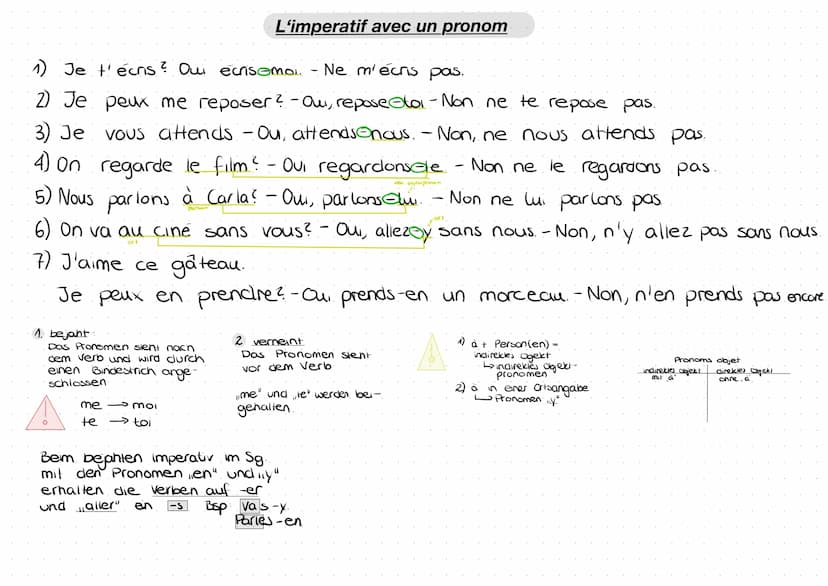 L'imperatif avec un pronom
1) Je t'écris? Oui écris-moi. - Ne m'écris pas.
2) Je peux me reposer? - Oui, repose-toi - Non ne te repose pas.
3) Je vous attends - Oui, attends-nous. - Non, ne nous attends pas.
4) On regarde le film? - Oui regardons-le - Non ne le regardons pas.
5) Nous parlons à Carla? - Oui, parlons-lui. - Non ne lui parlons pas
6) On va au ciné sans vous? - Oui, allez-y sans nous. - Non, n'y allez pas sans nous.
7) J'aime ce gâteau.
Je peux en prendre? - Oui prends-en un morceau. - Non, n'en prends pas encore
1. bejaht
Das Pronomen steht nach
dem Verb und wird durch
einen Bindestrich ange-
schlossen
me → moi
te → toi
2 verneint
Das Pronomen steht
vor dem Verb
"me" und "te" werden bei-
gehalten.
1) à + Person(en) =
indirektes Objekt
↳ indirektes Objekt-
pronomen
2) à in einer Ortsangabe
↳ Pronomen "y"
Pronoms objet
indirektes Objekt direktes Objekt
mit à ohne à
Beim bejahten imperativ im Sg.
mit den Pronomen "en" und "y"
erhalten die Verben auf -er
und "aller" en -s Bsp Vas-y.
Parles-en